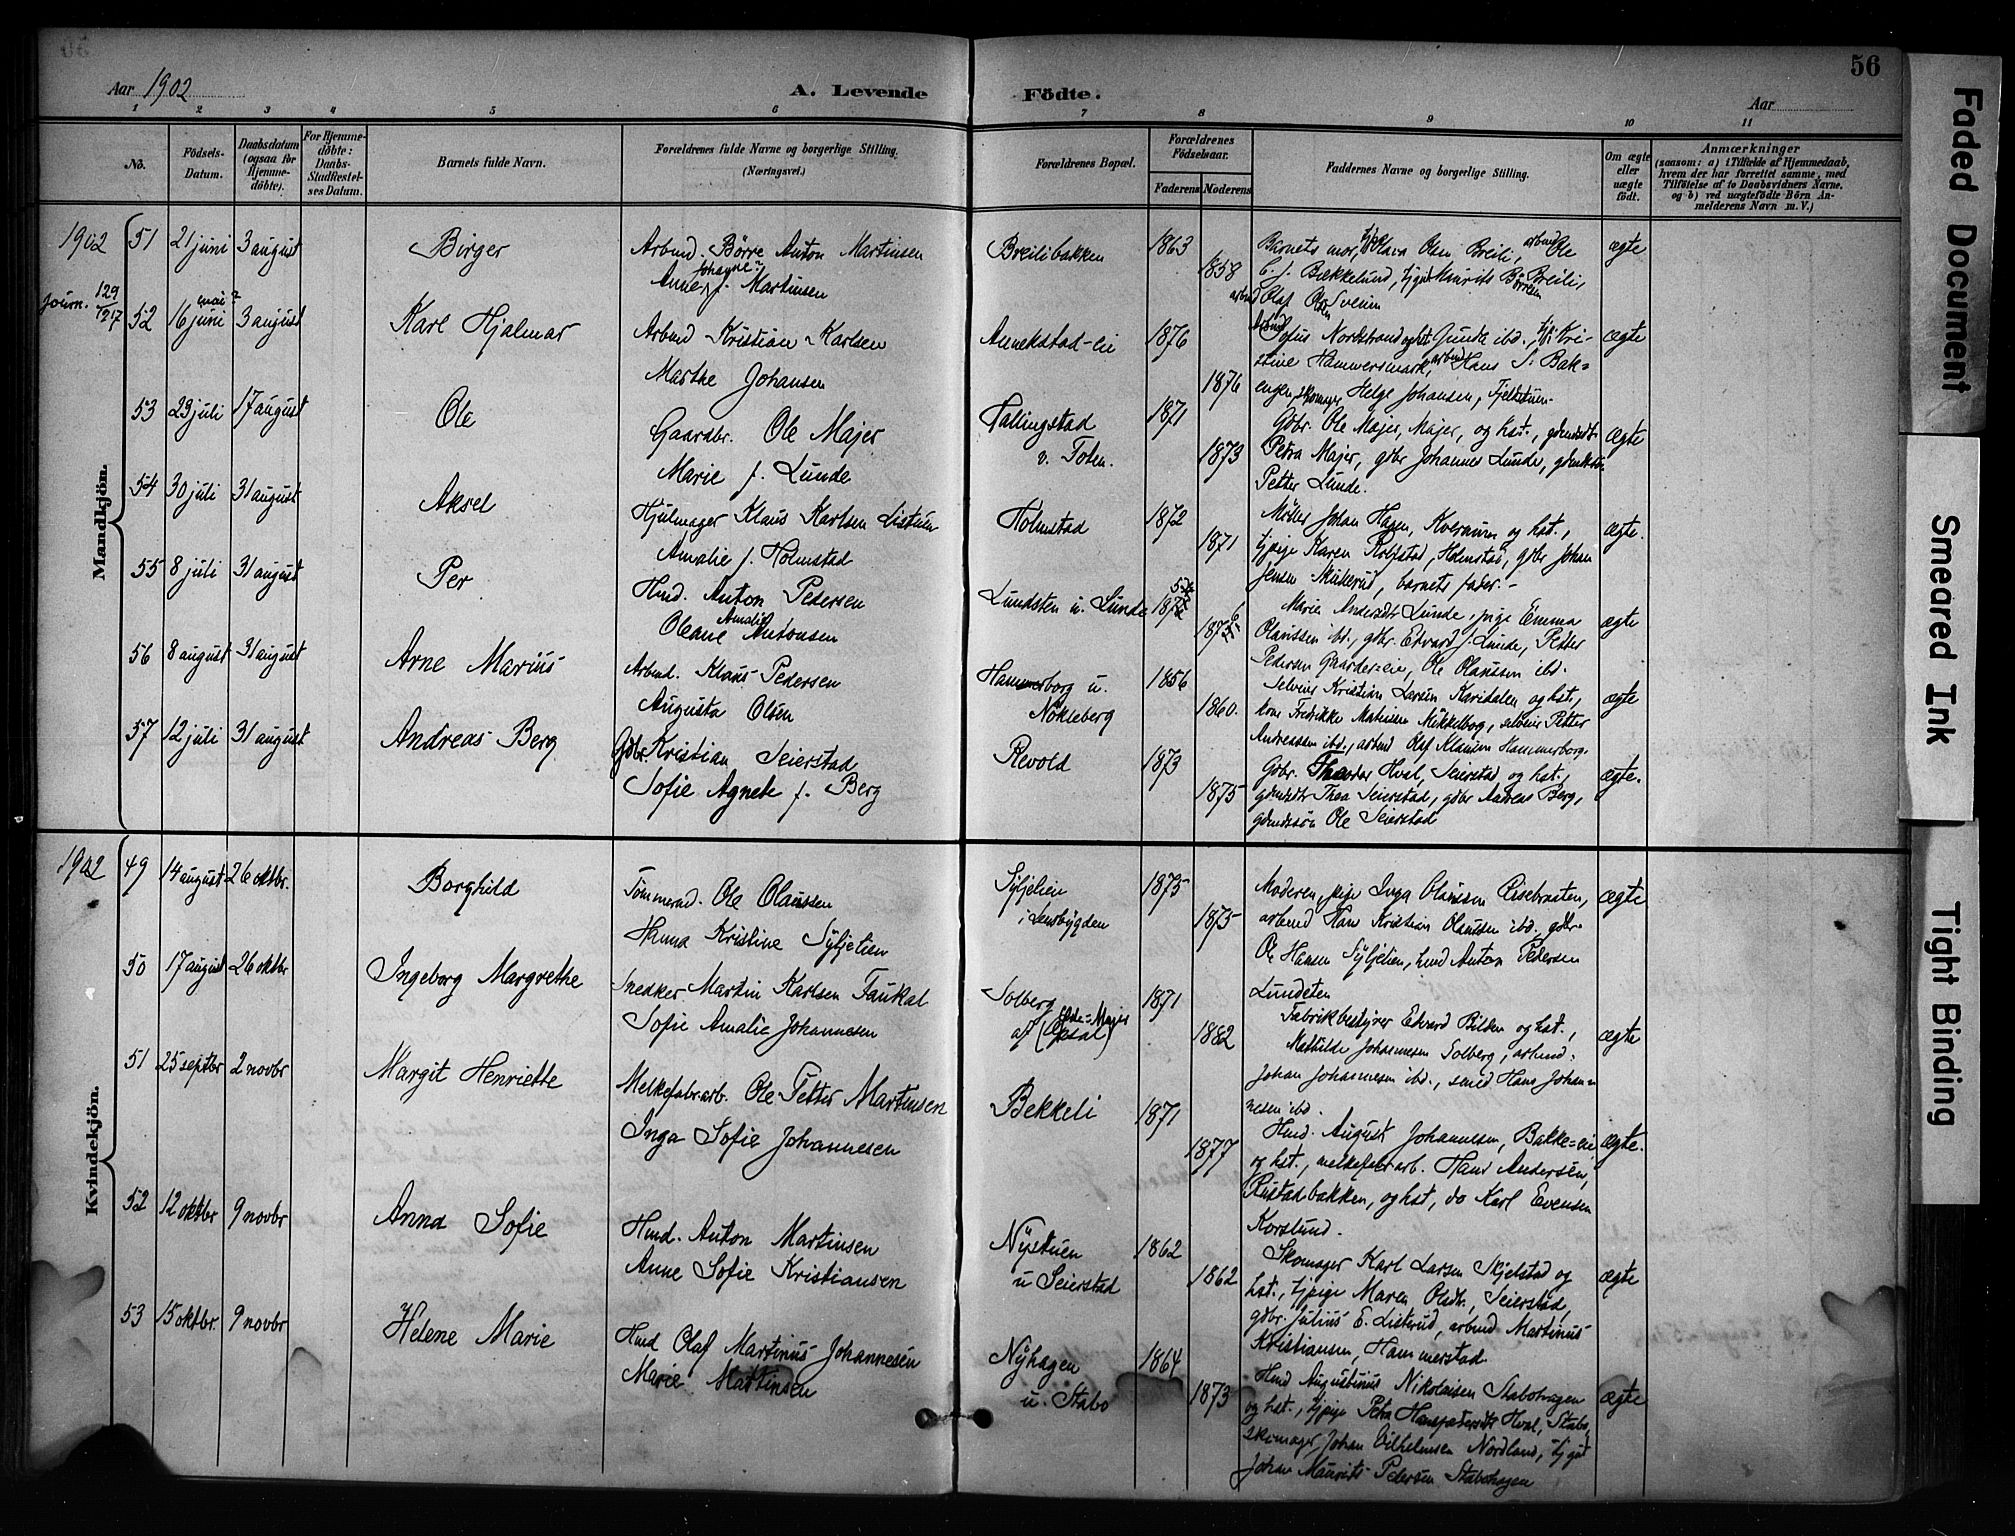 56
Aar 1902
A. Levende Födte.
Aar
1 2 3 4 5 6 7 8 9 10 11
No.
Födsels-Datum.
Daabsdatum (ogsaa for Hjemmedöbte).
For Hjemmedöbte: Daabs-Stadfæstelses Datum.
Barnets fulde Navn.
Forældrenes fulde Navne og borgerlige Stilling. (Næringsvei.)
Forældrenes Bopæl.
Forældrenes Födselsaar.
Faderens Moderens
Faddernes Navne og borgerlige Stilling.
Om ægte eller uægte födt.
Anmærkninger
(saasom: a) i Tilfælde af Hjemmedaab, hvem der har forrettet samme, med Tilföielse af to Daabsvidners Navne, og b) ved uægtefödte Börn Anmelderens Navn m. V.)
Mandkjön.
1902 51 21 juni 3 august Birger
Arbmd. Börre Anton Martinsen
Anne Johanne? f. Martinsen
Breilibakken 1863 1858
Barnets mor, Olava Olsen Breili, arbmd Ole
C. f. Bækkelund, tj.gut Maurits Börresen Breili,
arbmd Olaf Olsen Sveim
ægte
Journ. 129 127
52 16 juni mai? 3 august Karl Hjalmar
Arbmd Kristian Karlsen
Marthe Johansen
Annekstad-ei 1876 1876
Arbmd Sofus Nordstrand og hst. Gunda ibd., tj.pi. Kristine Hammersmark, arbmd Hans S. Bakengen, skomager Helge Johansen, Fjeldstuen
ægte
53 23 juli 17 august Ole
Gaardbr. Ole Majer
Marie f. Lunde
Hallingstad v. Toten. 1871 1873
Gdbr. Ole Majer, Majer, og hst., gdmdsdt.
Petra Majer, gdbr Johannes Lunde, gdmdssön
Petter Lunde.
ægte
54 30 juli 31 august Aksel
Hjulmager Klaus Karlsen Listuen
Amalie f. Holmstad
Holmstad 1872 1871
Möller Johan Hagen, Kvernum og hst.,
tjpige Karen Kolstad, Holmstad, gdbr Johan
Jensen Skikerud, barnets fader.-
ægte.
55 8 juli 31 august Per
Hmd. Anton Pedersen
Oleane Amalie Antonsen
Lundsten u. Lunde
Marie Andersdt Lunde, pige Emma
Olaussen ibd., gdbr. Edvard J. Lunde, Petter
Pedersen Gaarder-eie, Ole Olaussen ibd.
ægte
56 8 august 31 august Arne Marius
Arbmd. Klaus Pedersen
Augusta Olsen
Hammerborg u. Nökleberg 1856 1860.
Selveier Kristian Larsen Karidalen og hst.,
kone Fredrikke Mathisen Mikkelborg, selveier Petter
Andreassen ibd., arbmd Olaf Klausen Hammerborg.
ægte
57 12 juli 31 august Andreas Berg
Gdbr. Kristian Seierstad
Sofie Agnete f. Berg
Revold 1873 1875
Gdbr. Theodor Hval, Seierstad og hst.,
gdmdsdt Thea Seierstad, gdbr Andreas Berg,
gdmdssön Ole Seierstad
ægte.
Kvindekjön.
1902 49 14 august 26 oktbr. Borghild
Tömmermd. Ole Olaussen
Hanna Kristine Syljelien
Syljelien i Lensbygden 1875 1875
Moderen, pige Inga Olaussen Risebraaten,
arbmd Hans Kristian Olaussen ibd., gdbr
Ole Hansen Syljelien, hmd Anton Pedersen
Lundsten
ægte
50 17 august 26 oktbr Ingeborg Margrethe
Snedker Martin Karlsen Faukal
Sofie Amalie Johannesen
Solberg af (Opsal) 1871 1882
Fabrikbestyrer Edvard Bilden og hst.,
Mathilde Johannesen Solberg, arbmd.
Johan Johannesen ibd., smed Hans Johannesen ibd.
ægte
51 25 septbr 2 novbr Margit Henriette
Melkefabr.arb. Ole Petter Martinsen
Inga Sofie Johannesen
Bekkeli 1871 1877
Hmd. August Johannesen, Bakke-eie
og hst., melkefabr.arb. Hans Andersen,
Rustadbakken, og hst, do Karl Evensen
Korslund.
ægte.
52 12 oktbr 9 novbr Anna Sofie
Hmd. Anton Martinsen
Anne Sofie Kristiansen
Nystuen u Seierstad 1862 1862
Skomager Karl Larsen Skjelstad og
hst., tjpige Maren Olsdt., Seierstad,
gdbr. Julius E. Listerud, arbmd Martinus
Kristiansen, Hammerstad
ægte
53 15 oktbr. 9 novbr Helene Marie
Hmd Olaf Martinus Johannesen
Marie Martinsen
Nyhagen u. Stabo 1864 1873
Hmd Augustinus Nikolaisen Stabohagen
og hst., tjpige Petra Hanspedersdt Hval, Stabo,
skomager Johan Vilhelmsen Nordland, tjgut
Johan Maurits Pedersen Stabohagen
ægte
Faded Document
Smeared Ink
Tight Binding